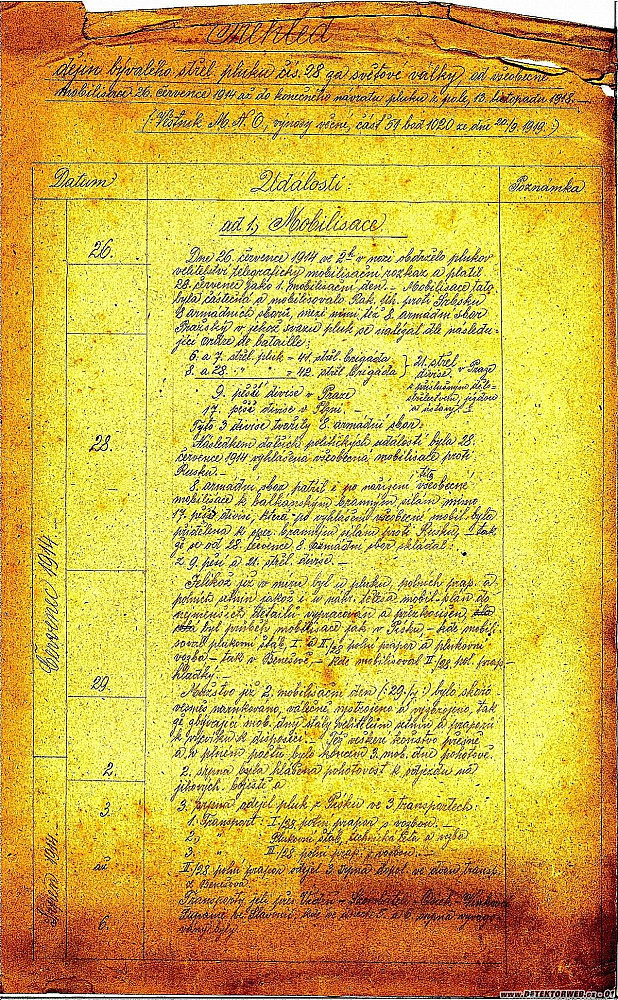 Přehled
dějin bývalého střel. pluku čís. 28 za světové války, od všeobecné
mobilisace 26. července 1914 až do konečného návratu pluku z pole, 13. listopadu 1918. —
(Věstník M. N. O., výnosy věcné, část 51 bod 1020 ze dne 20/9. 1919.)
Datum Události: Poznámka
ad 1, Mobilisace.
26.
Dne 26. července 1914 ve 2h v noci obdrželo plukov.
velitelství telegraficky mobilisační rozkaz a platil
28. července jako 1. mobilisační den. — Mobilisace tato
byla částečná a mobilisovalo Rak. Uh. proti Srbsku
8 armádních sborů, mezi nimi též 8. armádní sbor
Pražský v jehož svazu pluk se nalézal dle následu-
jící ordre de bataille:
6. a 7. střel. pluk = 41. střel. brigáda
8. a 28. " " = 42. střel. brigáda
21. střel. divise v Praze
s příslušným dělo-
střelectvem, jízdou
a ústavy. —
9. pěší divise v Praze
17. pěší divise v Plzni. —
Tyto 3 divise tvořily 8. armádní sbor.
28.
Následkem dalších politických událostí byla 28.
července 1914 vyhlášena všeobecná mobilisace proti
Rusku. —
8. armádní sbor patřil i po nařízení této všeobecné
mobilisace k balkánským branným silám mimo
17. pěší divisi, která po vyhlášení všeobecné mobil. byla
přidělena k oper. branným silám proti Rusku, — tak
že se od 28. července 8. armádní sbor skládal:
z 9. pěší a 21. střel. divise. —
Červenec 1914. —
Jelikož již v míru byl u pluku, polních prap. a
polních setnin jakož i u náhr. tělesa mobil. plán do
nejmenších detailů vypracován a přezkoušen,
byl průběh mobilisace jak v Písku — kde mobili-
soval plukovní štáb, I. a III/28 polní prapor a plukovní
vozba — tak v Benešově, — kde mobilisoval II/28 pol. prap.
hladký. —
29.
Mužstvo již 2. mobilisační den (29/7) bylo skoro
vesměs narukováno, válečně vystrojeno a vyzbrojeno, tak
že zbývající mob. dny stály velitelům setnin a praporů
k výcviku k disposici. — Též veškeré koňstvo přesně
a v plném počtu bylo koncem 3. mob. dne pohotově.
2.
2. srpna byla hlášena pohotovost k odjezdu na
jihových. bojiště a
3.
3. srpna odjel pluk z Písku ve 3 transportech.
1. Transport: I/28 polní prapor s vozbou. —
2. " Plukovní štáb, technická četa a vozba
3. " III/28 polní prap. s vozbou. —
až
II/28 polní prapor odejel 3. srpna dopol. ve dvou transp.
z Benešova.
Srpen 1914.
Transporty jely přes Vídeň — — Osek —
Županje ve Slavonii, kde ve dnech 5. a 6. srpna vyvago-
6.
novány byly.
www.DETEKTORWEB.cz